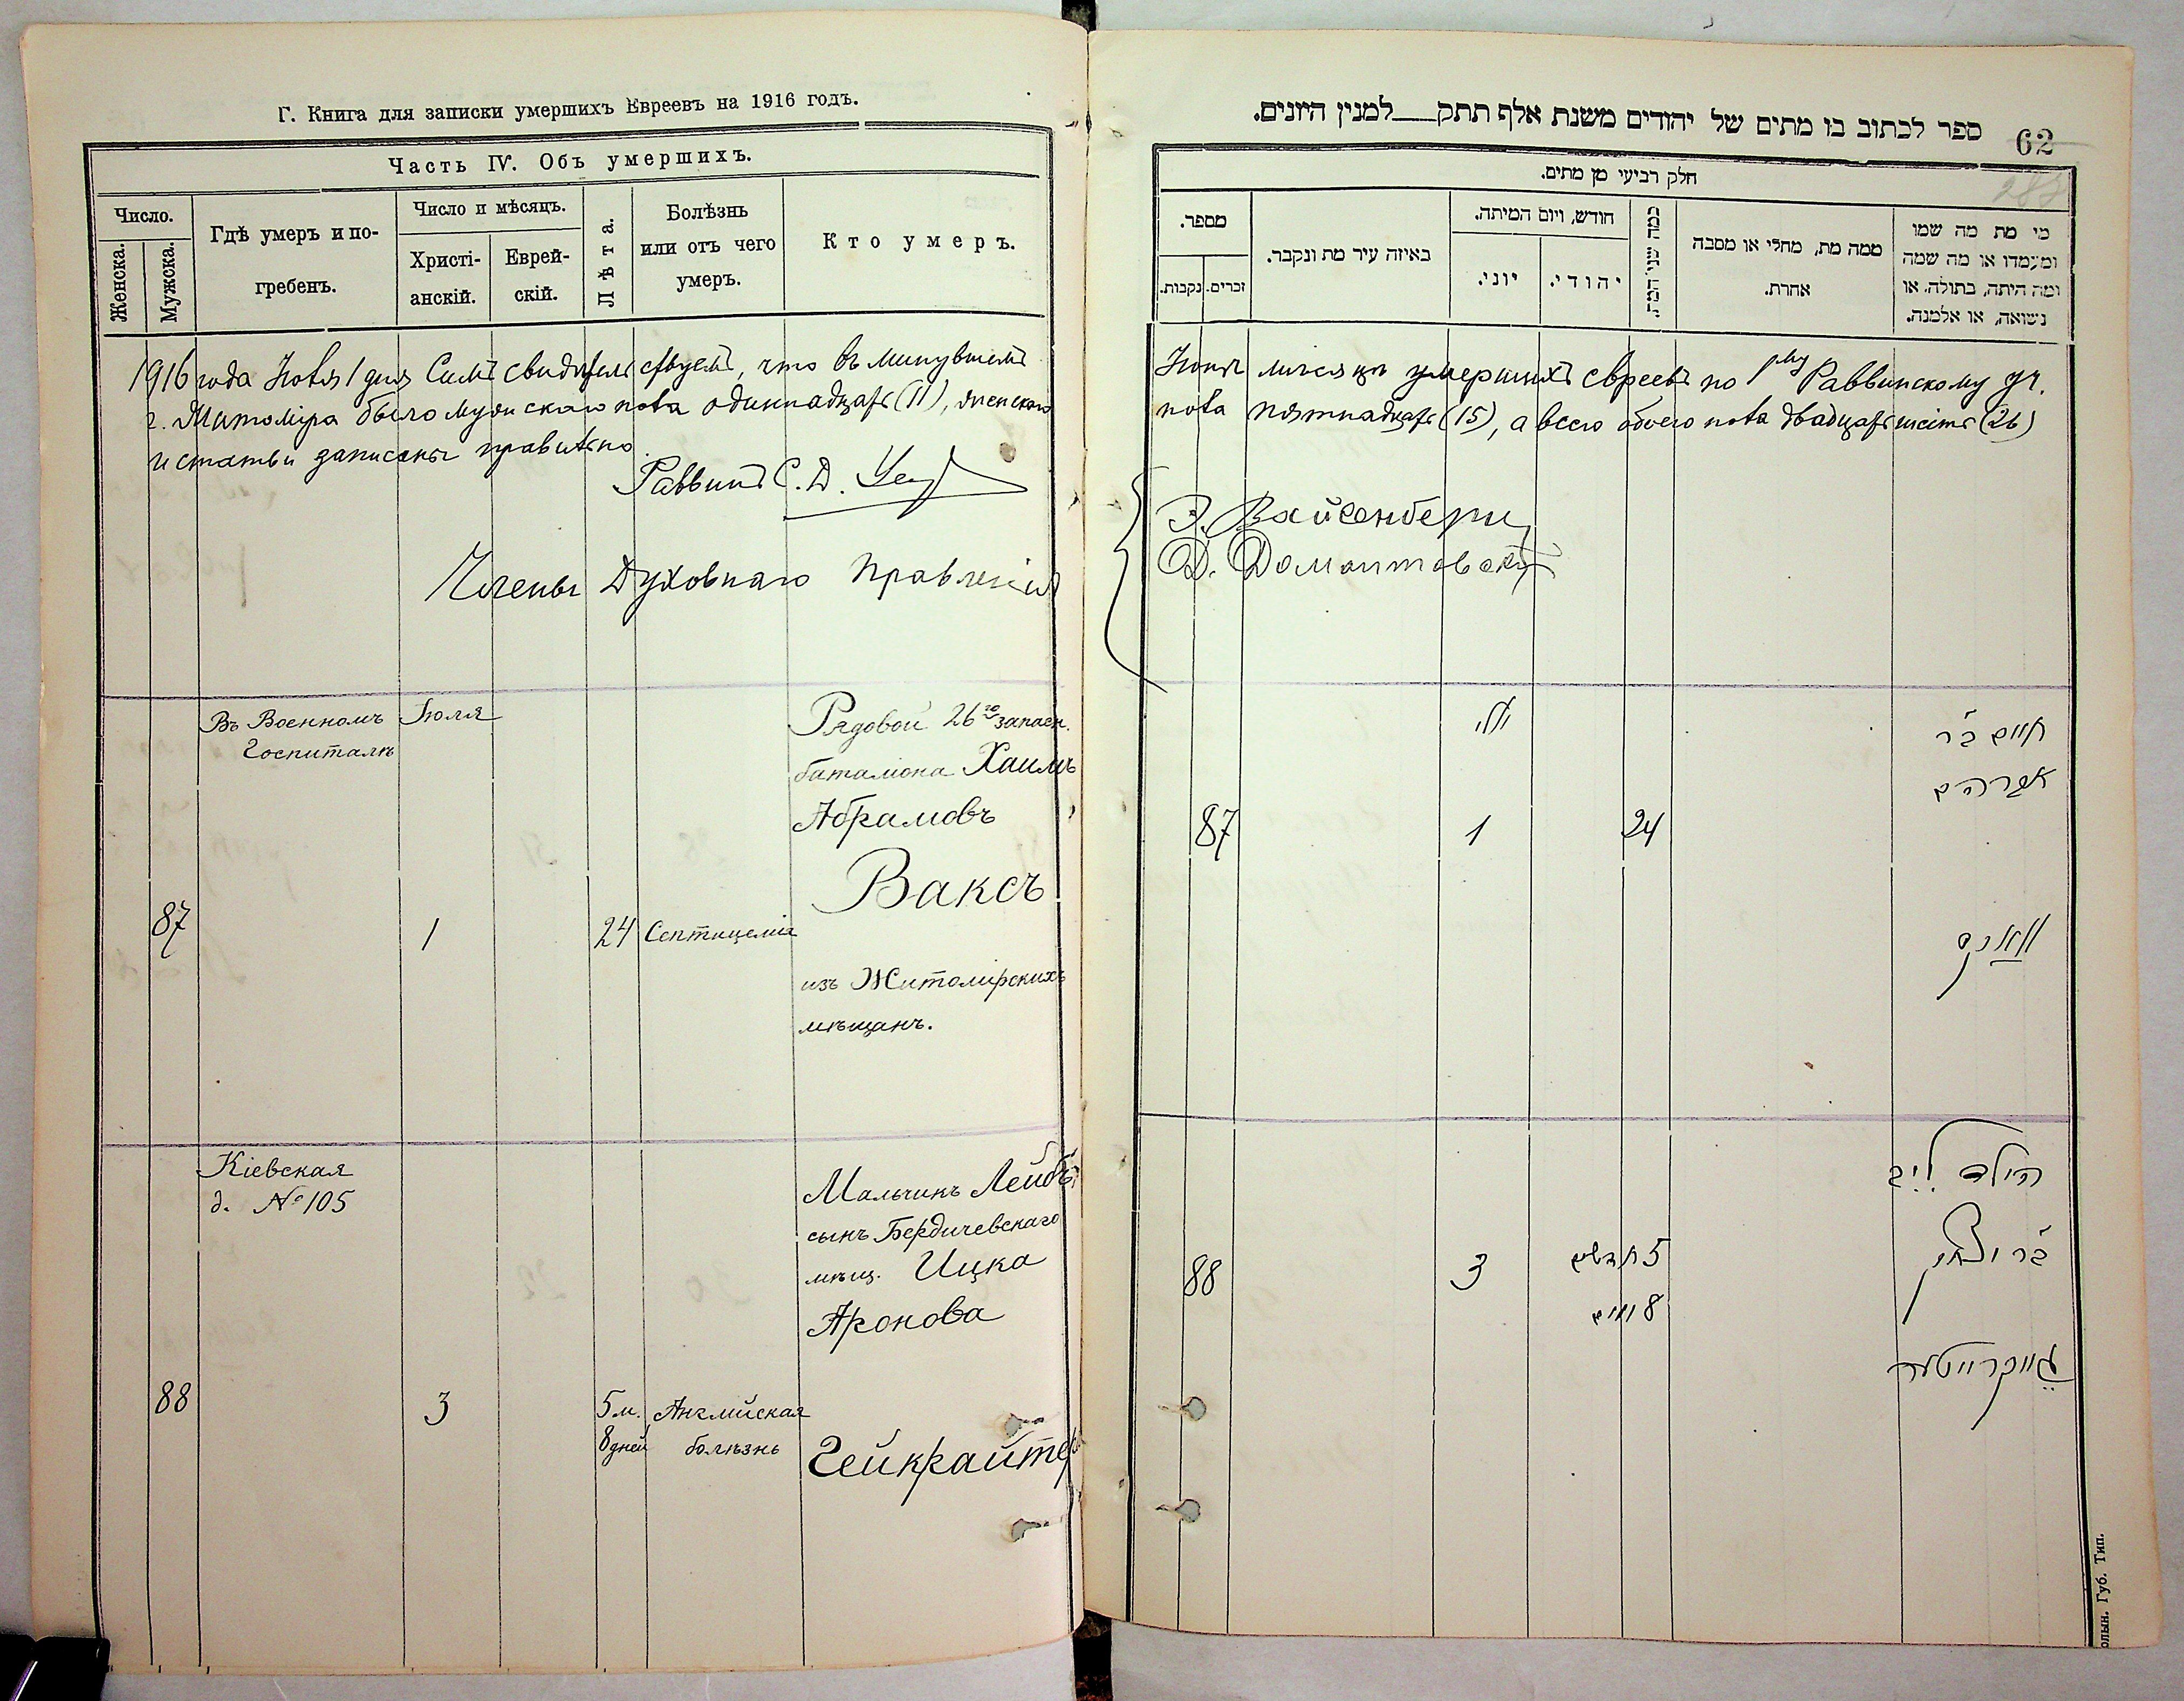 Г. Книга для записки умершихъ Евреевъ на 1916 годъ.
Часть IV. Объ умершихъ.
Число.
Женска.
Мужска.
Гдѣ умеръ и по-
гребенъ.
Число и мѣсяцъ.
Христі-
анскій.
Еврей-
скій.
Лѣта.
Болѣзнь
или отъ чего
умеръ.
Кто умеръ.
1916 года Іюля 1 дня Симъ свидѣтельствуемъ, что въ минувшемъ
г. Житоміра было мужскаго пола одиннадцать (11), женскаго
и статьи записаны правильно
Раввинъ С. Д.
Члены Духовнаго Правленія
Въ Военномъ
Госпиталѣ
Іюля
Рядовой 26го запасн.
баталіона Хаимъ
Абрамовъ
Ваксъ
87
1
24
Септицемія
изъ Житомірскихъ
мѣщанъ.
Кіевская
д. № 105
Мальчикъ Лейбъ
сынъ Бердичевскаго
мѣщ. Ицка
Аронова
88
3
5 м.
8 дней
Англійская
болѣзнь
Гейкрайтер
ספר לכתוב בו מתים של יהודים משנת אלף תתק למנין היונים.
62
חלק רביעי מן מתים.
מספר.
זכרים.
נקבות.
באיזה עיר מת ונקבר.
חודש, ויום המיתה.
יוני.
יהודי.
כמה שני המת.
ממה מת, מחלי או מסבה
אחרת.
מי מת מה שמו
ומעמדו או מה שמה
ומה היתה, בתולה, או
נשואה, או אלמנה.
Іюнѣ мѣсяцѣ умершихъ евреевъ по 1му Раввинскому уч.
пола пятнадцать (15), а всего обоего пола двадцать шесть (26)
Э. Вайсенбергъ
Д. Домонтовскій
יולי
חיים ב״ר
אברהם
87
1
24
וואקס
הילד ליב
ב״ר יצחק
88
3
5 חדשים
8 ימים
גייקרייטער
олын. Губ. Тип.